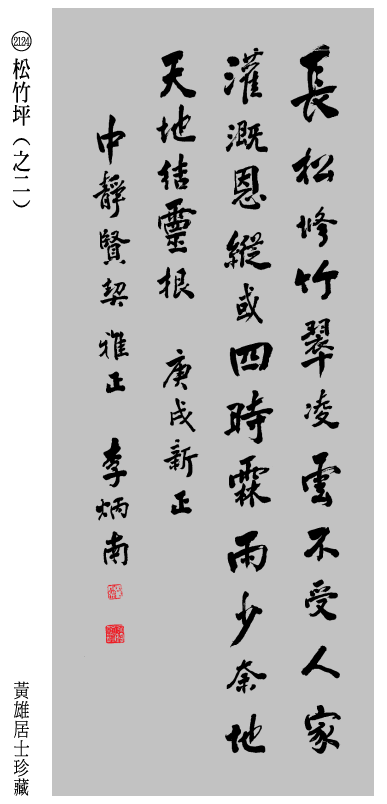 長松修竹翠凌雲不受人家
灌溉恩縱或四時霖雨少奈他
天地結靈根 庚戌新正
中靜賢契 雅正 李炳南
2124 松竹坪（之二）
黃雄居士珍藏